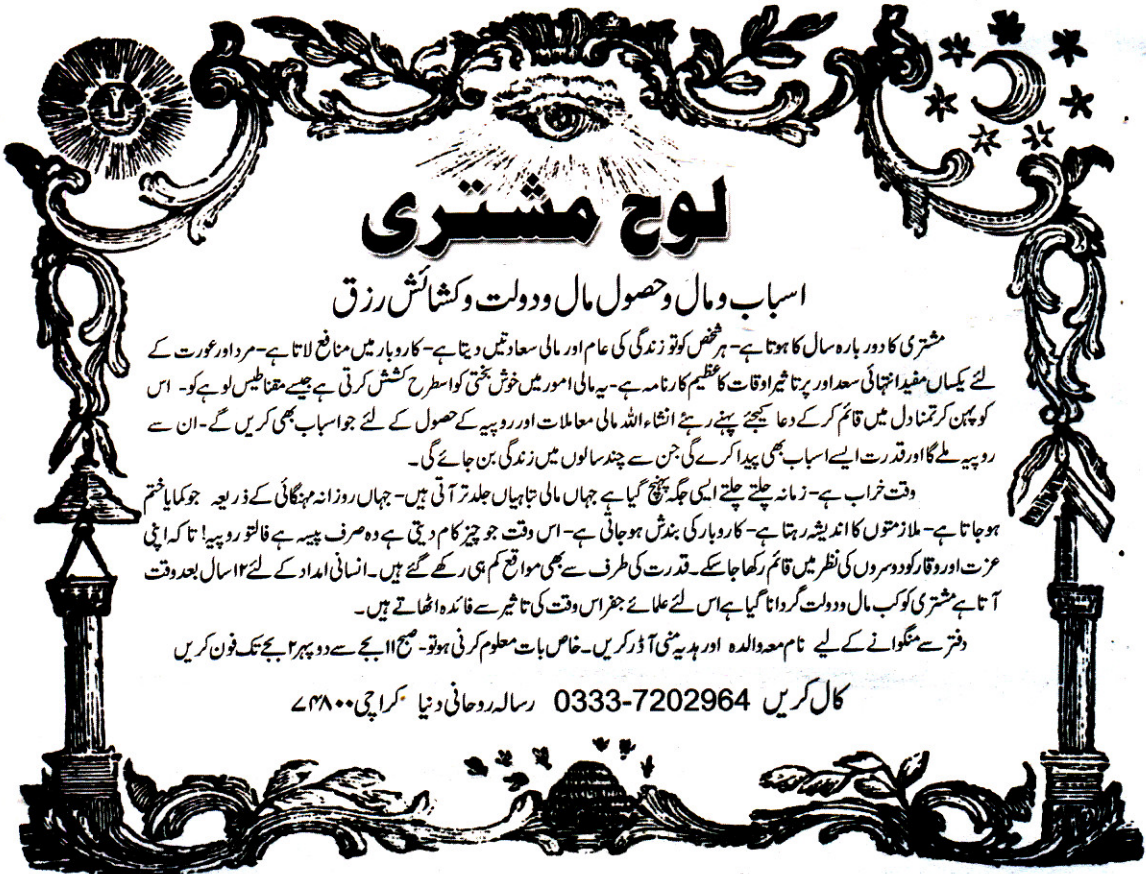 لوح مشتری
اسباب و مال و حصول مال و دولت و کشائش رزق
مشتری کا دور بارہ سال کا ہوتا ہے- ہر شخص کو تو زندگی کی عام اور مالی سعادتیں دیتا ہے- کاروبار میں منافع لاتا ہے- مرد اور عورت کے
لئے یکساں مفید انتہائی سعد اور پر تاثیر اوقات کا عظیم کارنامہ ہے- یہ مالی امور میں خوش بختی کو اسطرح کشش کرتی ہے جیسے مقناطیس لوہے کو- اس
کو پہن کر تمنا دل میں قائم کر کے دعا کیجئے پہنے رہئے انشاء اللہ مالی معاملات اور روپیہ کے حصول کے لئے جو اسباب بھی کریں گے- ان سے
روپیہ ملے گا اور قدرت ایسے اسباب بھی پیدا کرے گی جن سے چند سالوں میں زندگی بن جائے گی۔
وقت خراب ہے- زمانہ چلتے چلتے ایسی جگہ پہنچ گیا ہے جہاں مالی تباہیاں جلد تر آتی ہیں- جہاں روزانہ مہنگائی کے ذریعہ جو کمایا ختم
ہو جاتا ہے- ملازمتوں کا اندیشہ رہتا ہے- کاروبار کی بندش ہو جاتی ہے- اس وقت جو چیز کام دیتی ہے وہ صرف پیسہ ہے فالتو روپیہ! تاکہ اپنی
عزت اور وقار کو دوسروں کی نظر میں قائم رکھا جا سکے۔ قدرت کی طرف سے بھی مواقع کم ہی رکھے گئے ہیں۔ انسانی امداد کے لئے ۱۲ سال بعد وقت
آتا ہے مشتری کو کب مال و دولت گردانا گیا ہے اس لئے علمائے جفر اس وقت کی تاثیر سے فائدہ اٹھاتے ہیں۔
دفتر سے منگوانے کے لیے نام معہ والدہ اور ہدیہ منی آڈر کریں۔ خاص بات معلوم کرنی ہو تو- صبح ۱۱ بجے سے دوپہر ۲ بجے تک فون کریں
کال کریں 0333-7202964 رسالہ روحانی دنیا کراچی ۷۴۸۰۰